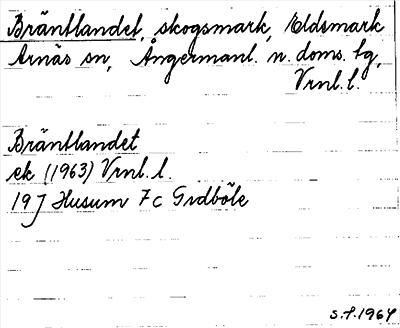 Bräntlandet, skogsmark, Eldsmark
Arnäs sn, Ångermanl. n. doms. tg,
Vrnl. l.
Bräntlandet
ek (1963) Vrnl. l.
19J Husum 7c Gidböle
S.F. 1964